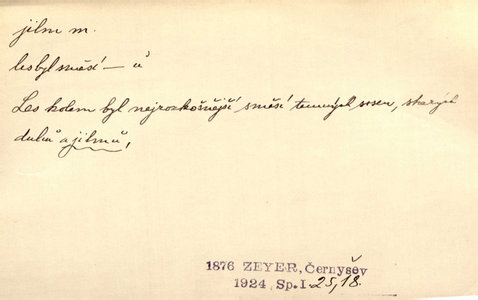 jilm m.
les byl směsí — ů
Les kolem byl nejrozkošnější směsí temných sosen, starých
dubů a jilmů,
1876 ZEYER, Černyšev
1924, Sp. I. 25, 18.